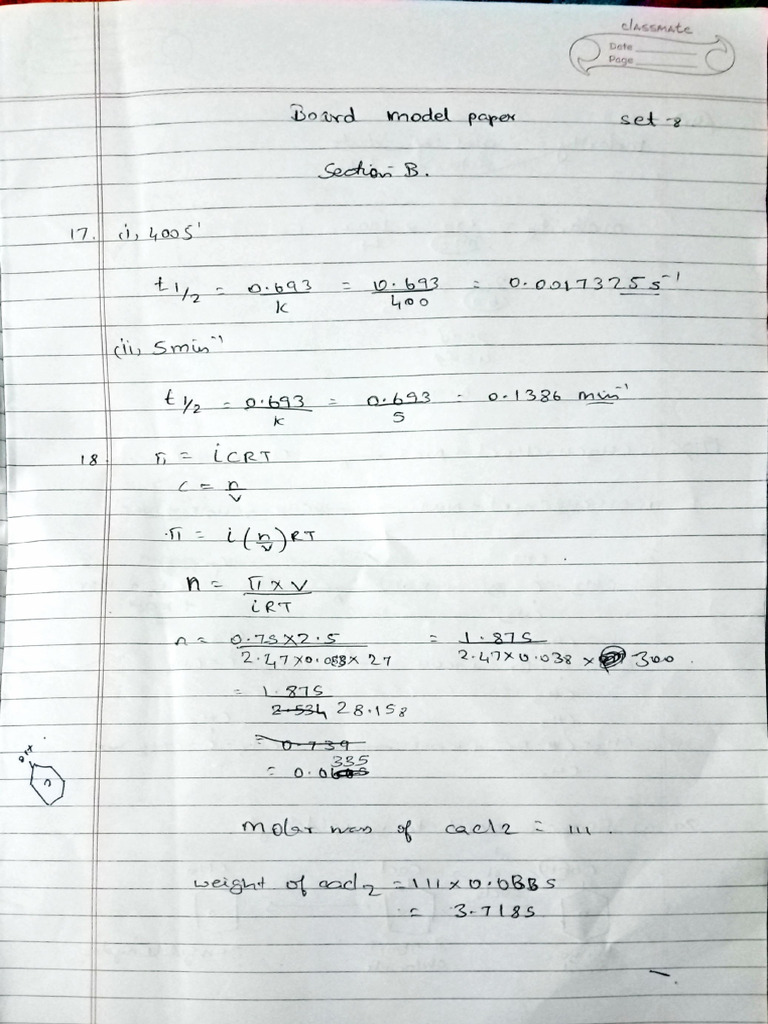 classmate
Date
Page
Board model paper set-8
Section B.
17. (i) 400 s¹
t1/2 = 0.693/k = 0.693/400 = 0.0017325 s⁻¹
(ii) 5 min⁻¹
t1/2 = 0.693/k = 0.693/5 = 0.1386 min⁻¹
18. π = iCRT
c = n/v
π = i(n/v)RT
n = π × v/iRT
n = 0.75 × 2.5/2.47 × 0.038 × 27 = 1.875/2.47 × 0.038 × 300.
= 1.875/28.158
= 0.0335
Molar mass of cacl2 = 111.
weight of cacl2 = 111 × 0.0335
= 3.7185